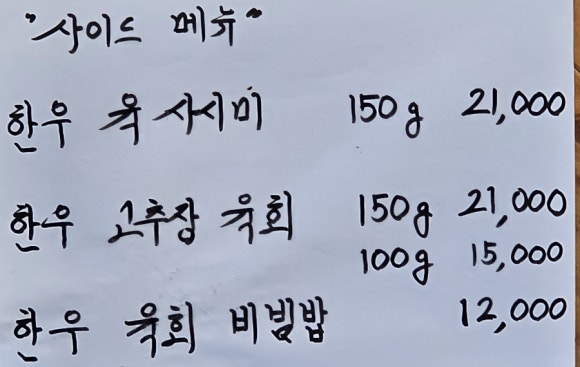 "사이드 메뉴"
한우 육사시미 150g 21,000
한우 고추장 육회 150g 21,000
100g 15,000
한우 육회 비빔밥 12,000